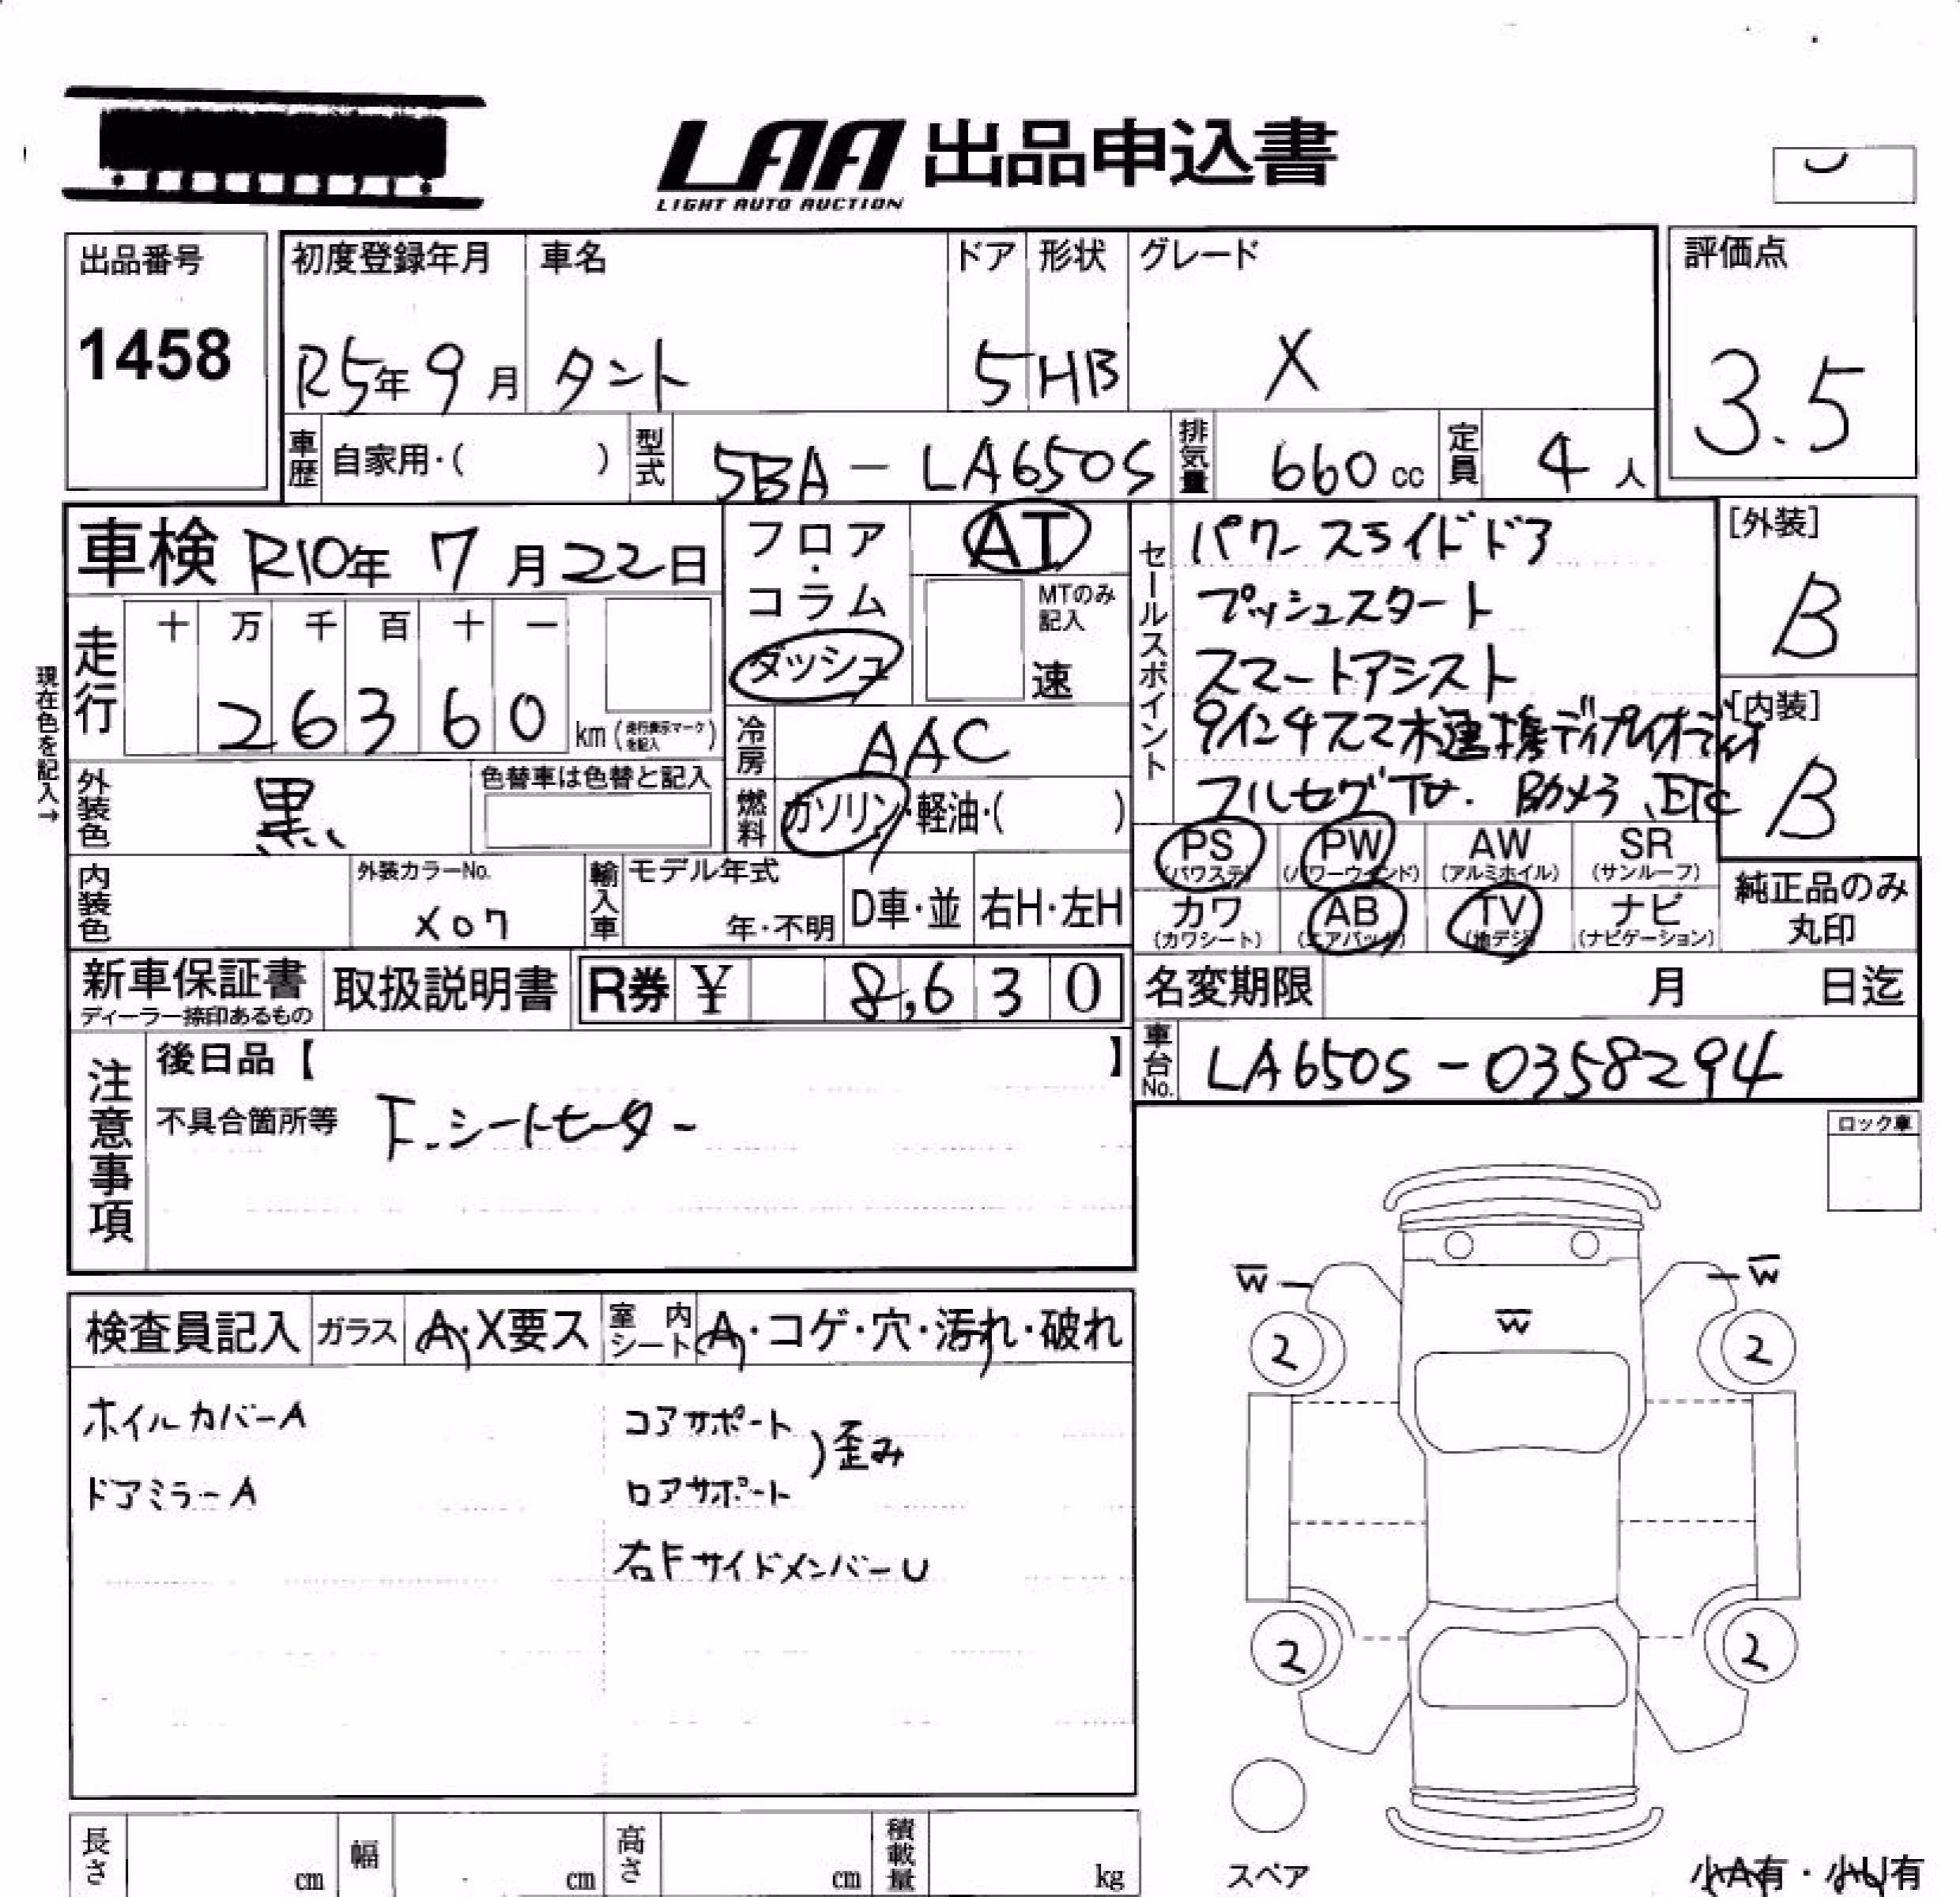 LAA 出品申込書
LIGHT AUTO AUCTION
出品番号
1458
初度登録年月
R5年9月
車名
タント
ドア
5
形状
HB
グレード
X
評価点
3.5
車歴 自家用・( )
型式 5BA-LA650S
排気量 660cc
定員 4人
車検 R10年7月22日
現在色を記入→
走行 十 万 千 百 十 一
26360 km(走行表示マークを記入)
フロア・コラム
ダッシュ
AT
MTのみ記入
速
冷房 AAC
燃料 ガソリン・軽油・( )
セールスポイント
パワースライドドア
プッシュスタート
スマートアシスト
9インチスマホ連携ディプレイオーディオ
フルセグTV. Bカメラ、ETC
[外装]
B
[内装]
B
外装色 黒
色替車は色替と記入
内装色
外装カラーNo.
X07
輸入車
モデル年式
年・不明
D車・並
右H・左H
PS (パワステ)
PW (パワーウインド)
AW (アルミホイル)
SR (サンルーフ)
カワ (カワシート)
AB (エアバッグ)
TV (地デジ)
ナビ (ナビゲーション)
純正品のみ
丸印
新車保証書
ディーラー捺印あるもの
取扱説明書
R券 ¥ 8,630
名変期限 月 日迄
車台No. LA650S-0358294
注意事項
後日品【 】
不具合箇所等 F.シートヒーター
ロック車
検査員記入
ガラス A・X要ス
室内シート A・コゲ・穴・汚れ・破れ
ホイルカバーA
ドアミラーA
コアサポート
ロアサポート
)歪み
右FサイドメンバーU
W
W
W
2
2
2
2
スペア
小A有・小U有
長さ cm
幅 cm
高さ cm
積載量 kg